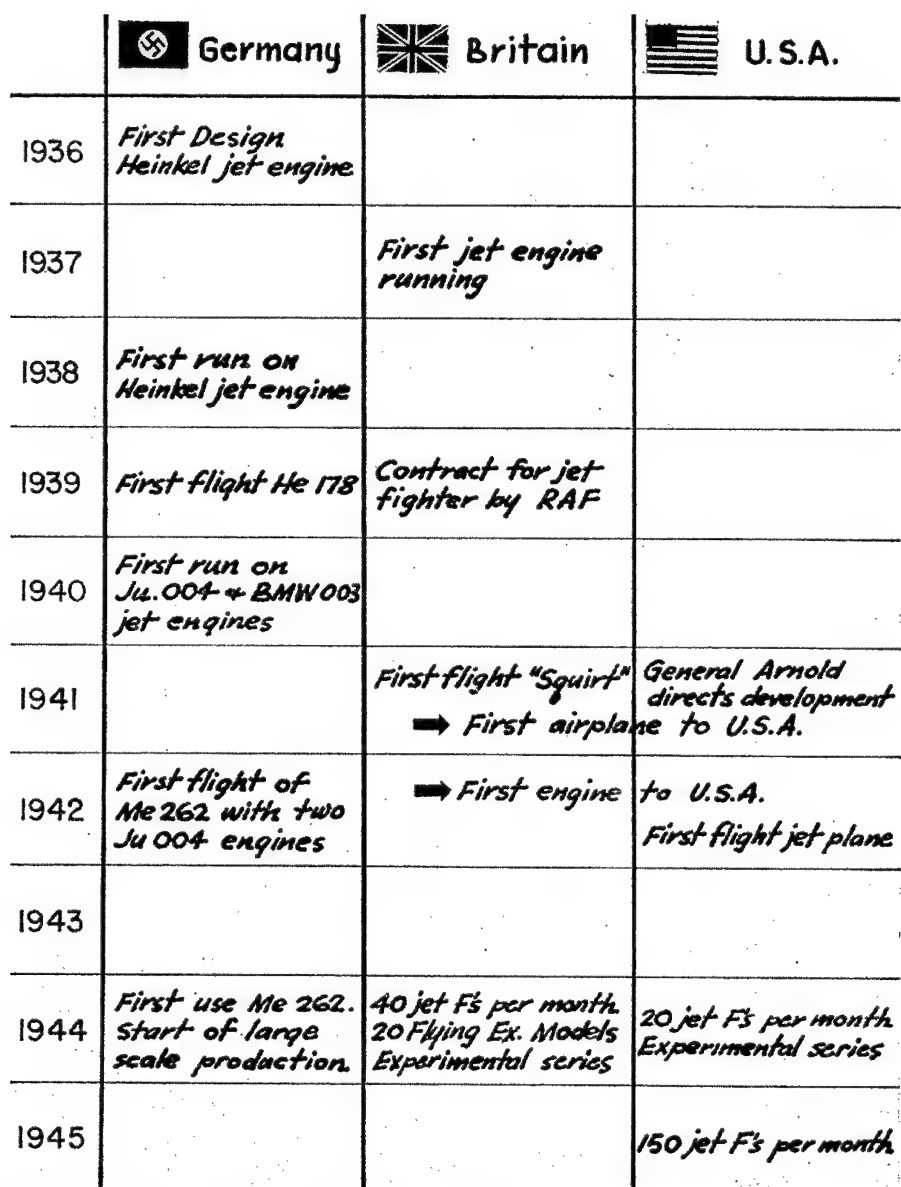 Germany Britain U.S.A.
1936
First Design
Heinkel jet engine
1937
First jet engine
running
1938
First run on
Heinkel jet engine
1939
First flight He 178
Contract for jet
fighter by RAF
1940
First run on
Ju. 004 & BMW 003
jet engines
1941
First flight "Squirt"
General Arnold
directs development
➡ First airplane to U.S.A.
1942
First flight of
Me 262 with two
Ju 004 engines
➡ First engine to U.S.A.
First flight jet plane
1943
1944
First use Me 262.
Start of large
scale production.
40 jet F's per month
20 Flying Ex. Models
Experimental series
20 jet F's per month
Experimental series
1945
150 jet F's per month